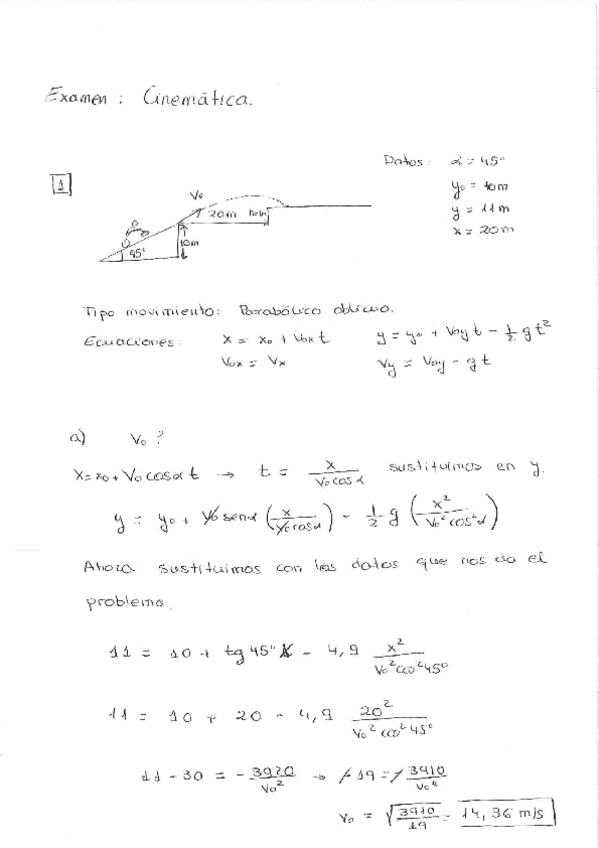 Examen: Cinemática.
Datos: α = 45°
y₀ = 10m
y = 11m
x = 20m
1
V₀
20m
10m
45°
Tipo movimiento: Parabólico oblicuo.
Ecuaciones: x = x₀ + V₀ₓt y = y₀ + V₀yt - 1/2 gt²
V₀ₓ = Vₓ Vy = V₀y - gt
a) V₀?
x = x₀ + V₀ cosα t → t = x/(V₀ cosα) sustituimos en y.
y = y₀ + V₀ senα (x/(V₀ cosα)) - 1/2 g (x²/(V₀² cos²α))
Ahora sustituimos con los datos que nos da el
problema.
11 = 10 + tg 45° x - 4,9 x²/(V₀² cos² 45°)
11 = 10 + 20 - 4,9 20²/(V₀² cos² 45°)
11 - 30 = - 3920/V₀² → -19 = - 3910/V₀²
V₀ = √(3910/19) = 14,36 m/s